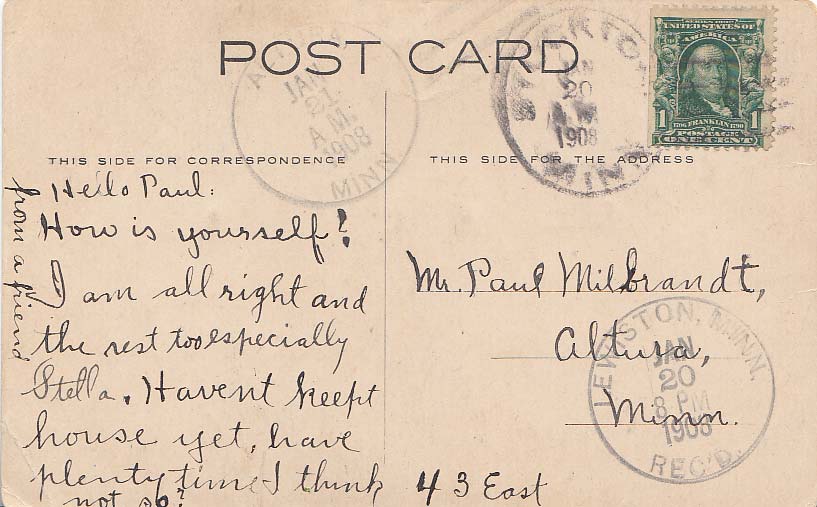 POST CARD
THIS SIDE FOR CORRESPONDENCE
Hello Paul:
How is yourself?
I am all right and
the rest too especially
Stella. Havent keept
house yet, have
plenty time I think
not so?
from a friend
THIS SIDE FOR THE ADDRESS
Mr. Paul Milbrandt,
Altura,
Minn.
43 East
JAN
21
A.M.
1908
MINN
JAN
20
1908
MINN
SERIES 1902
UNITED STATES OF
AMERICA
1 FRANKLIN 1
POSTAGE
ONE CENT
LEWISTON, MINN.
JAN
20
8 PM
1908
REC'D.